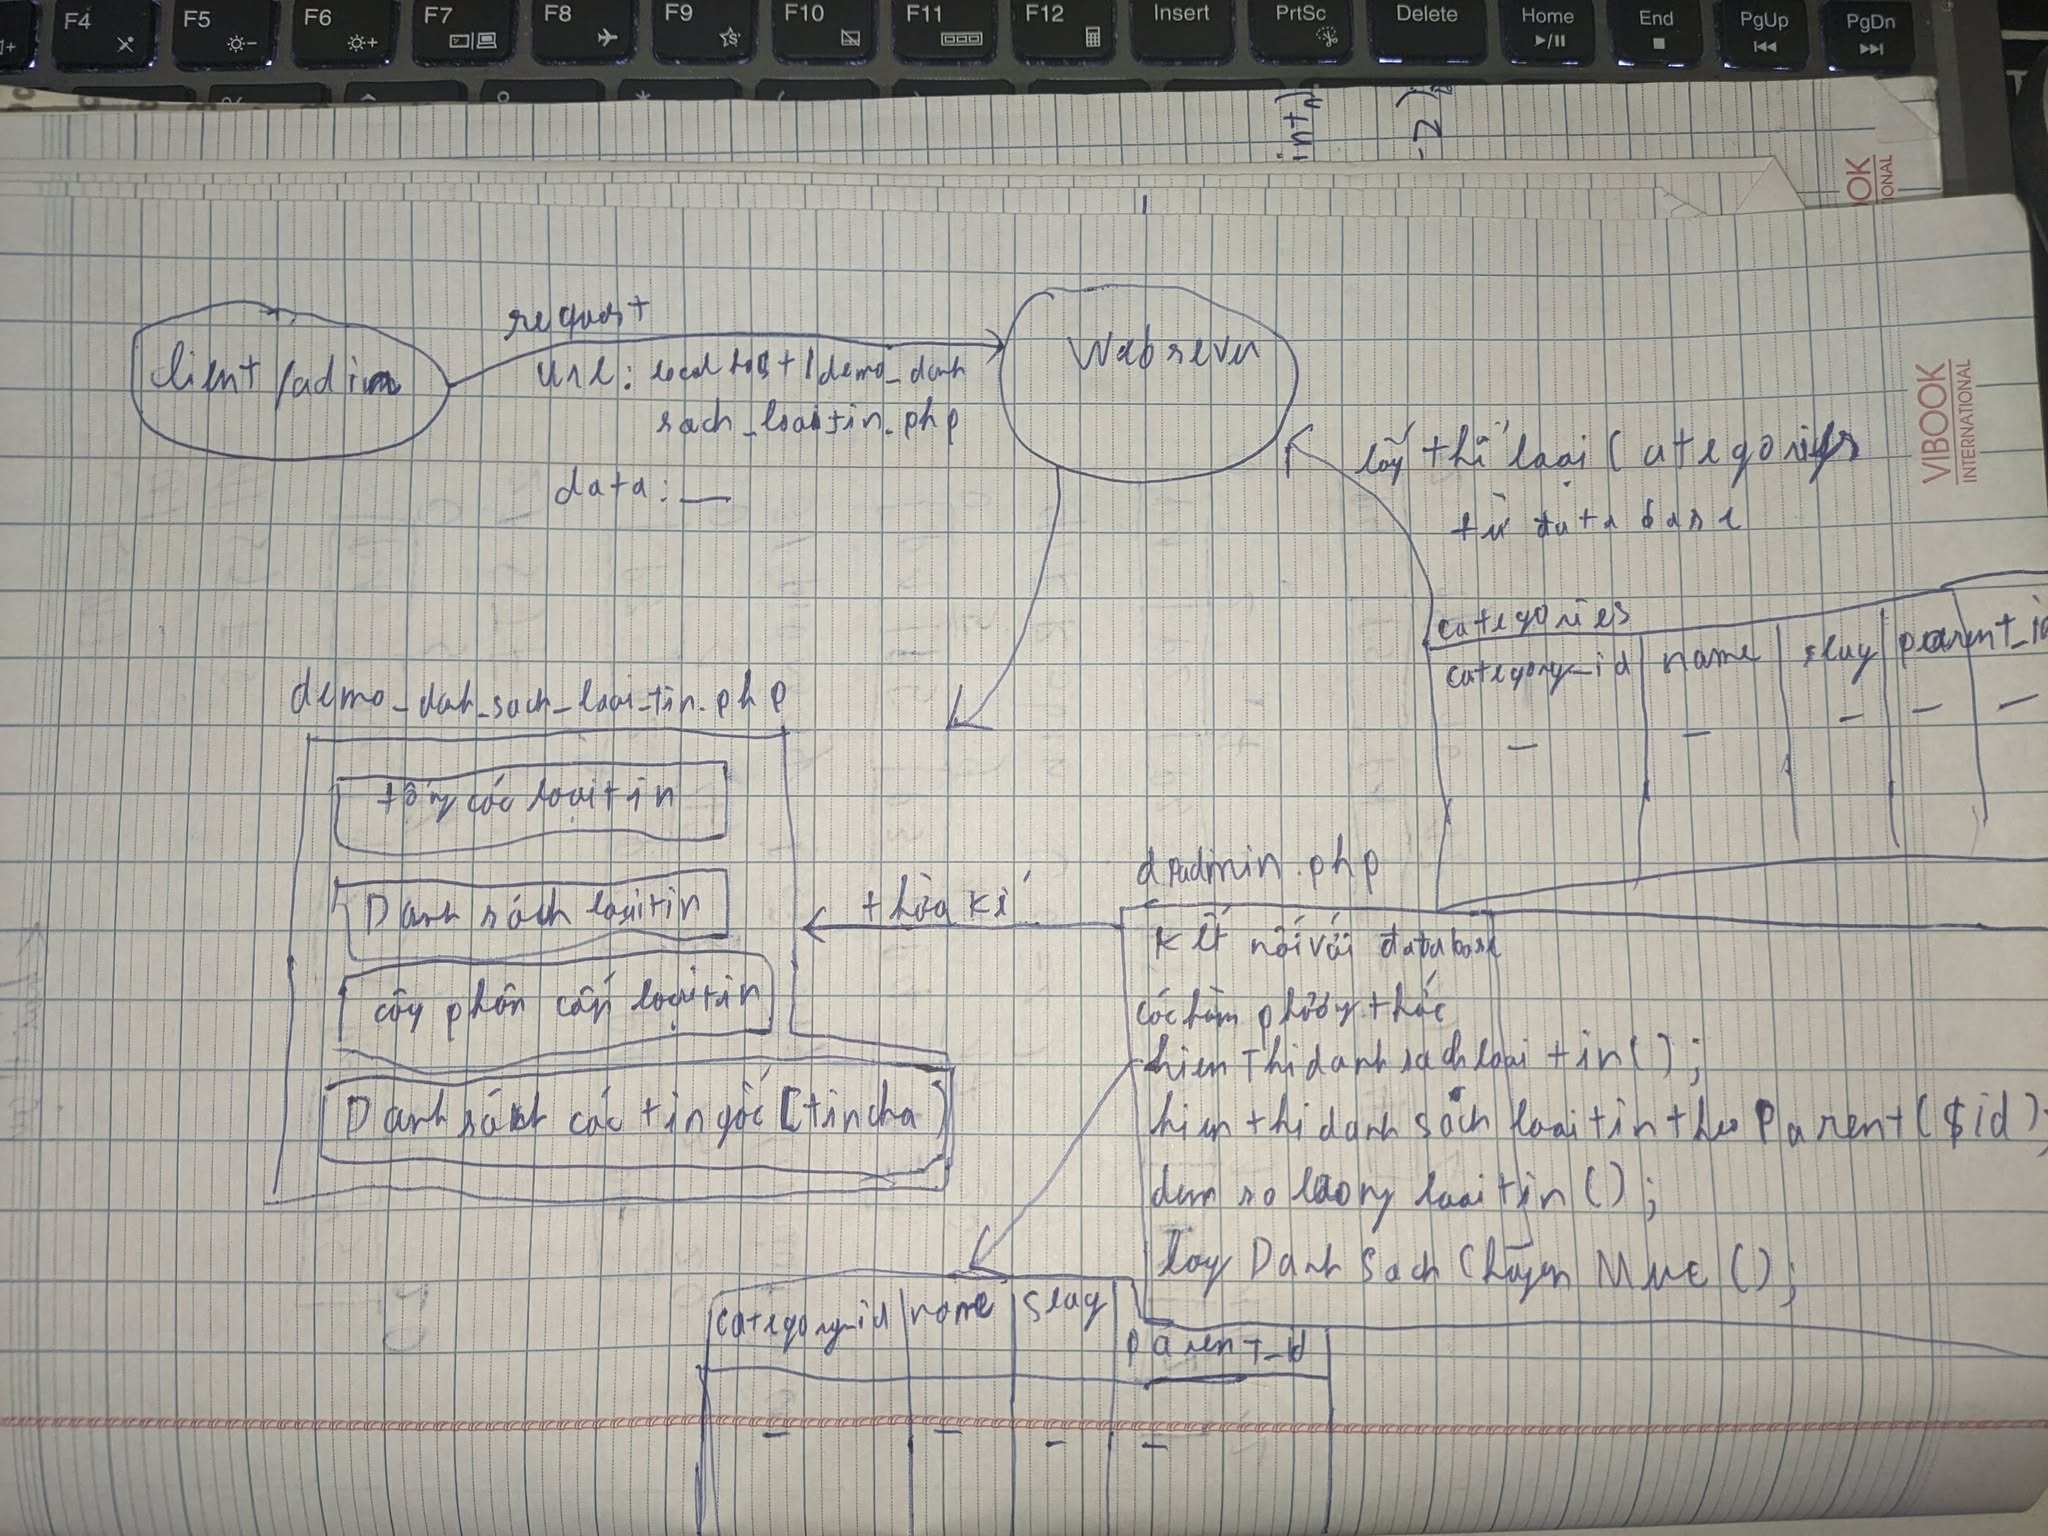 F4
F5
F6
F7
F8
F9
F10
F11
F12
Insert
PrtSc
Delete
Home
End
PgUp
PgDn
int
-2)
OK
IONAL
VIBOOK
INTERNATIONAL
request
Client/adin
url: localhost/demo_danh
sach_loaitin.php
data: __
Websever
lấy thể loại (categories
từ database
categories
category_id | name | slug | parent_id
demo_danh_sach_loai_tin.php
Danh sách loaitin
cây phân cấp loạitin
Danh sách các tin gốc [tin cha]
thừa kế
dbadmin.php
Kết nối với database
các hàm phương thức
hienThidanhsachloaitin();
hienthidanhsáchloaitintheoParent($id);
demsoluongloaitin();
layDanhSachChuyenMuc();
category_id | name | slug | parent_id